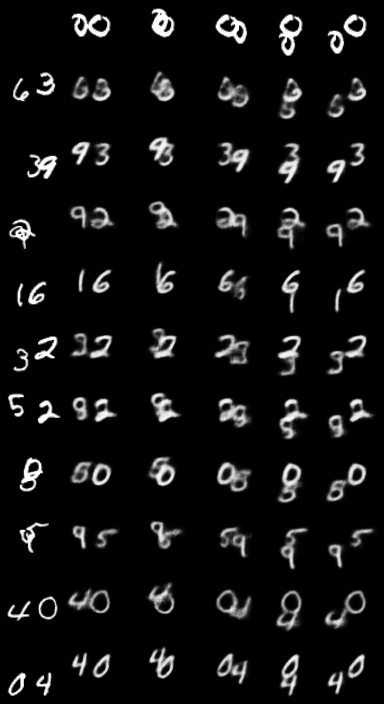 00 00 00 00 00
63
39 93 93 39 39 93
92 92 29 29 92
16 16 16 6 61 16
32 32 32 23 23 32
52 2 2 2 2
05 50 50 05 05 50
95 95 95 59 59 95
40 40 40 04 04 40
04 40 40 04 04 40